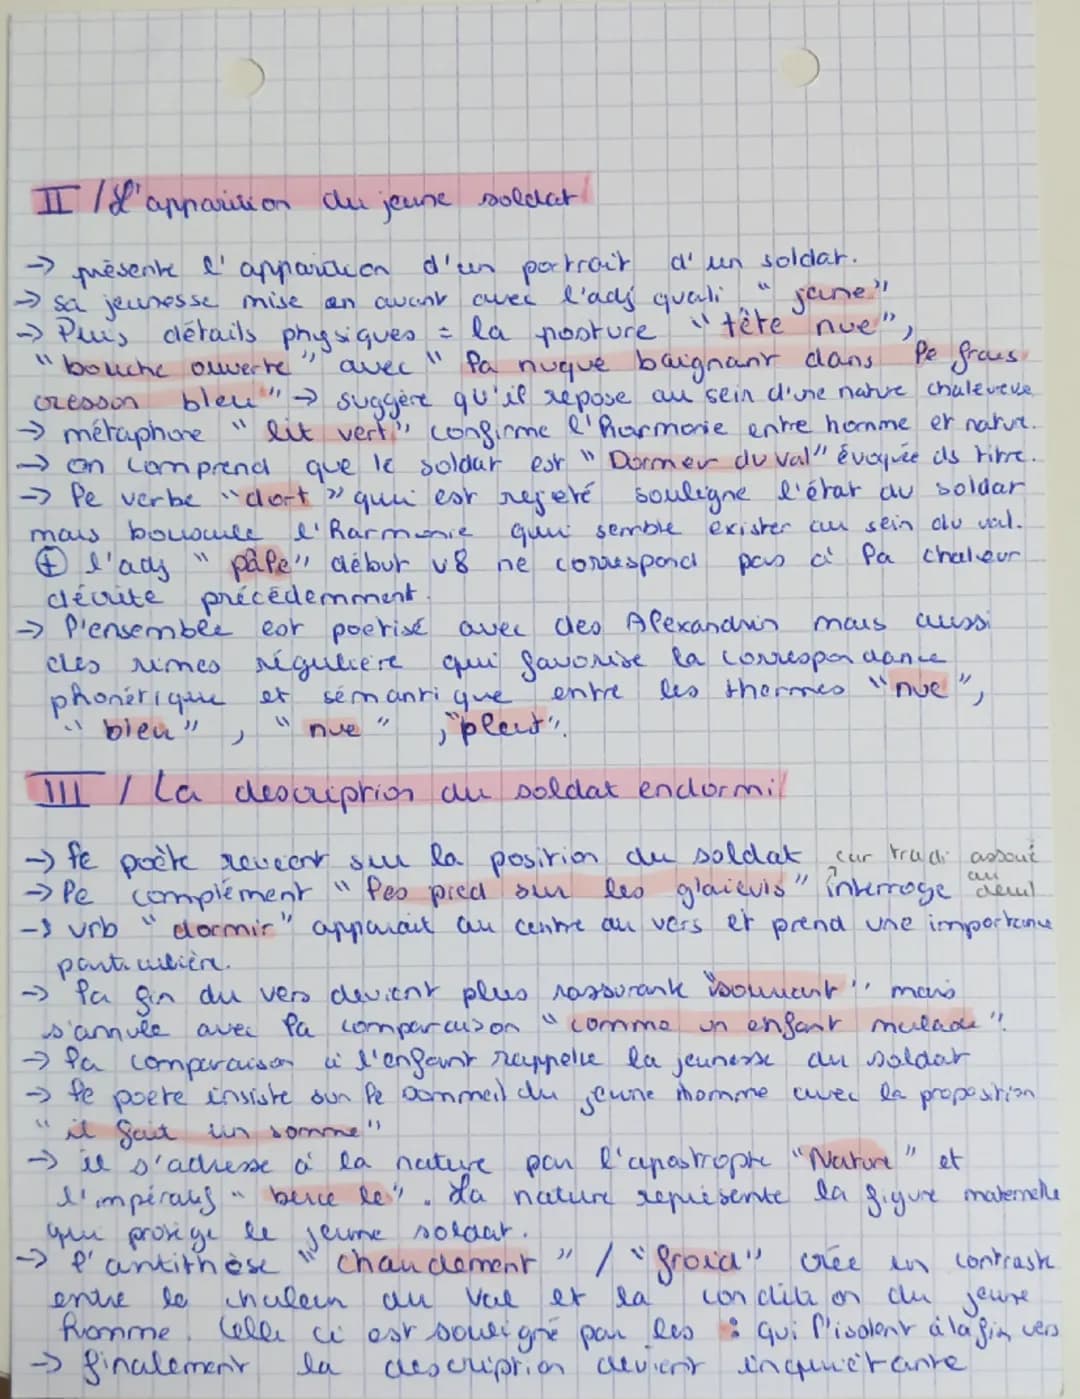 II / L'apparition du jeune soldat
→ présente l'apparition d'un portrait d'un soldat.
→ sa jeunesse mise en avant avec l'adj quali " jeune "
→ Plus détails physiques = la posture " tête nue ",
" bouche ouverte " avec " la nuque baignant dans le frais
cresson bleu " → suggère qu'il repose au sein d'une nature chaleureuse
→ métaphore " lit vert ", confirme l'harmonie entre homme et nature.
→ on comprend que le soldat est " Dormeur du val " évoquée ds titre.
→ le verbe " dort " qui est rejeté souligne l'état du soldat
mais bouscule l'harmonie qui semble exister au sein du val.
⊕ l'adj " pâle " début v8 ne correspond pas à la chaleur
décrite précédemment.
→ l'ensemble est poétisé avec des Alexandrin mais aussi
des rimes régulière qui favorise la correspondance
phonétique et sémantique entre les thermes " nue ",
" bleu " , " nue " , " pleut ".
III / La description du soldat endormi
→ le poète revient sur la position du soldat car tradi associé
→ le complément " les pied sur les glaïeuls " interroge au deuil
→ vrb " dormir " apparait au centre du vers et prend une importance
particulière.
→ la fin du vers devient plus rassurante " souriant " mais
s'annule avec la comparaison " comme un enfant malade ".
→ la comparaison à l'enfant rappelle la jeunesse du soldat
→ le poète insiste sur le sommeil du jeune homme avec la proposition
" il fait un somme "
→ il s'adresse à la nature par l'apostrophe " Nature " et
l'impératif " berce le ". La nature représente la figure maternelle
qui protège le jeune soldat.
→ l'antithèse " chaudement " / " froid " crée un contraste
entre la chaleur du val et la condition du jeune
homme. Celle ci est souligné par les : qui l'isolent à la fin vers
→ finalement la description devient inquiétante